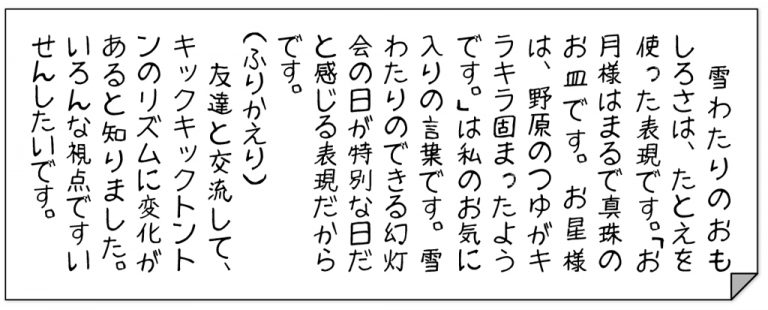 雪わたりのおも
しろさは、たとえを
使った表現です。「お
月様はまるで真珠の
お皿です。お星様
は、野原のつゆがキ
ラキラ固まったよう
です。」は私のお気に
入りの言葉です。雪
わたりのできる幻灯
会の日が特別な日だ
と感じる表現だから
です。
(ふりかえり)
友達と交流して、
キックキックトント
ンのリズムに変化が
あると知りました。
いろんな視点ですいい
せんしたいです。